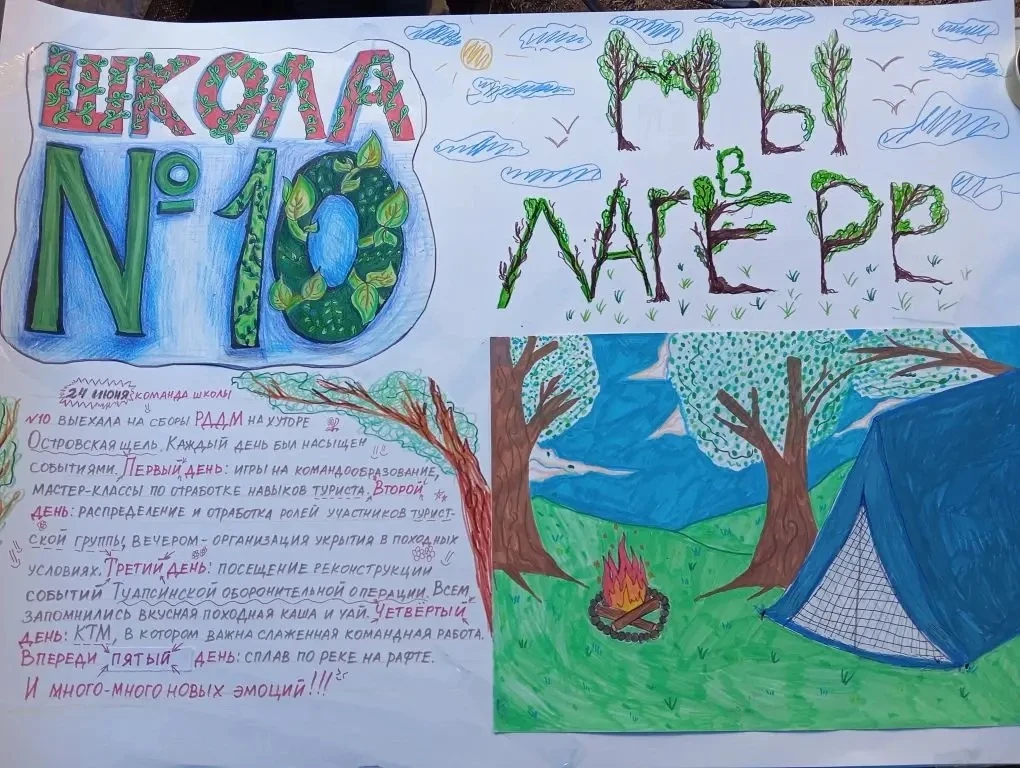 ШКОЛА
№10
МЫ
В
ЛАГЕРЕ
24 ИЮНЯ КОМАНДА ШКОЛЫ
№10 ВЫЕХАЛА НА СБОРЫ РДДМ НА ХУТОРЕ
ОСТРОВСКАЯ ЩЕЛЬ. КАЖДЫЙ ДЕНЬ БЫЛ НАСЫЩЕН
СОБЫТИЯМИ. ПЕРВЫЙ ДЕНЬ: ИГРЫ НА КОМАНДООБРАЗОВАНИЕ,
МАСТЕР-КЛАССЫ ПО ОТРАБОТКЕ НАВЫКОВ ТУРИСТА. ВТОРОЙ
ДЕНЬ: РАСПРЕДЕЛЕНИЕ И ОТРАБОТКА РОЛЕЙ УЧАСТНИКОВ ТУРИСТ-
СКОЙ ГРУППЫ, ВЕЧЕРОМ - ОРГАНИЗАЦИЯ УКРЫТИЯ В ПОХОДНЫХ
УСЛОВИЯХ. ТРЕТИЙ ДЕНЬ: ПОСЕЩЕНИЕ РЕКОНСТРУКЦИИ
СОБЫТИЙ ТУАПСИНСКОЙ ОБОРОНИТЕЛЬНОЙ ОПЕРАЦИИ. ВСЕМ
ЗАПОМНИЛИСЬ ВКУСНАЯ ПОХОДНАЯ КАША И ЧАЙ. ЧЕТВЁРТЫЙ
ДЕНЬ: КТМ, В КОТОРОМ ВАЖНА СЛАЖЕННАЯ КОМАНДНАЯ РАБОТА.
ВПЕРЕДИ ПЯТЫЙ ДЕНЬ: СПЛАВ ПО РЕКЕ НА РАФТЕ.
И МНОГО-МНОГО НОВЫХ ЭМОЦИЙ!!!